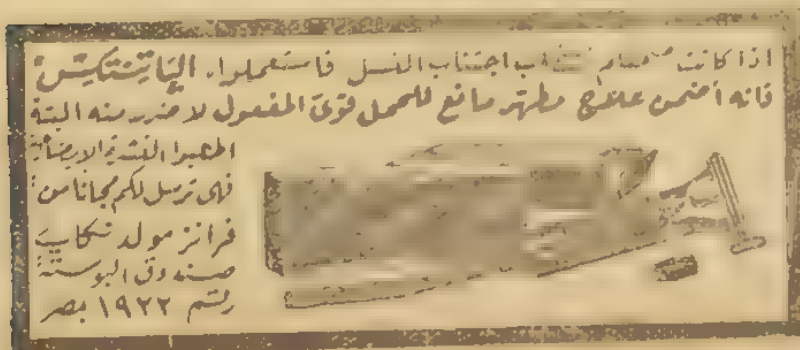 اذا كانت اجتناب النسل فاستعملوا. الپاتنتكس
فانه أضمن علاج مطهر مانع للحمل قوى المفعول لا ضرر منه البتة
اطلبوا النشرة الايضاحية
فهى ترسل لكم مجانا من
فرانز مولد نكاب
صندوق البوستة
رقم ١٩٢٢ بمصر